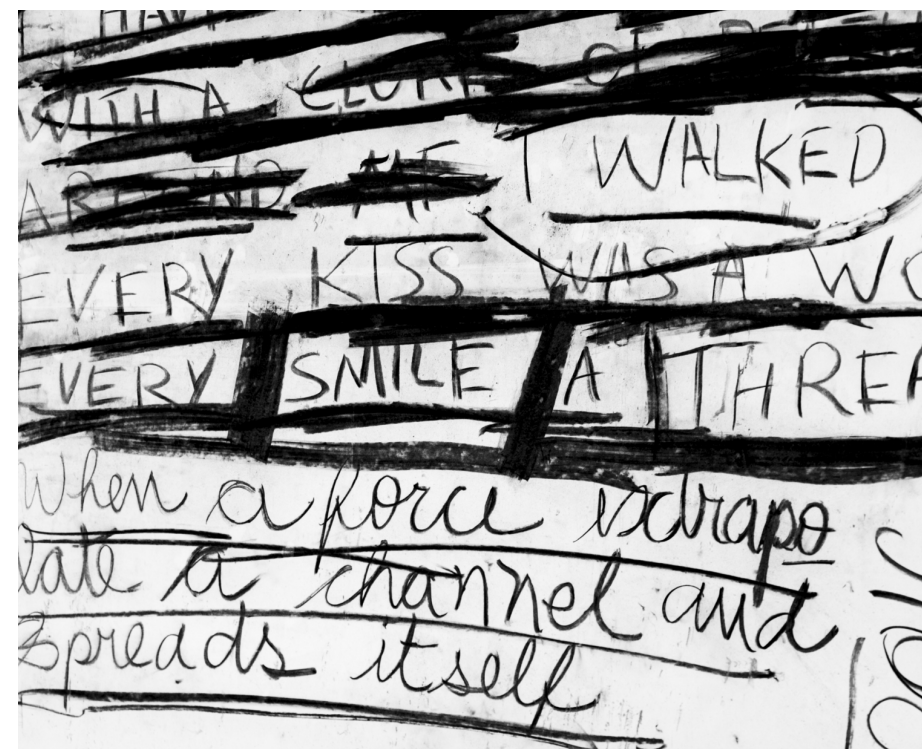 WITH A OF
AROUND ME I WALKED
EVERY KISS WAS A WO
EVERY SMILE A THREA
When a force extrapo
late a channel and
spreads itself